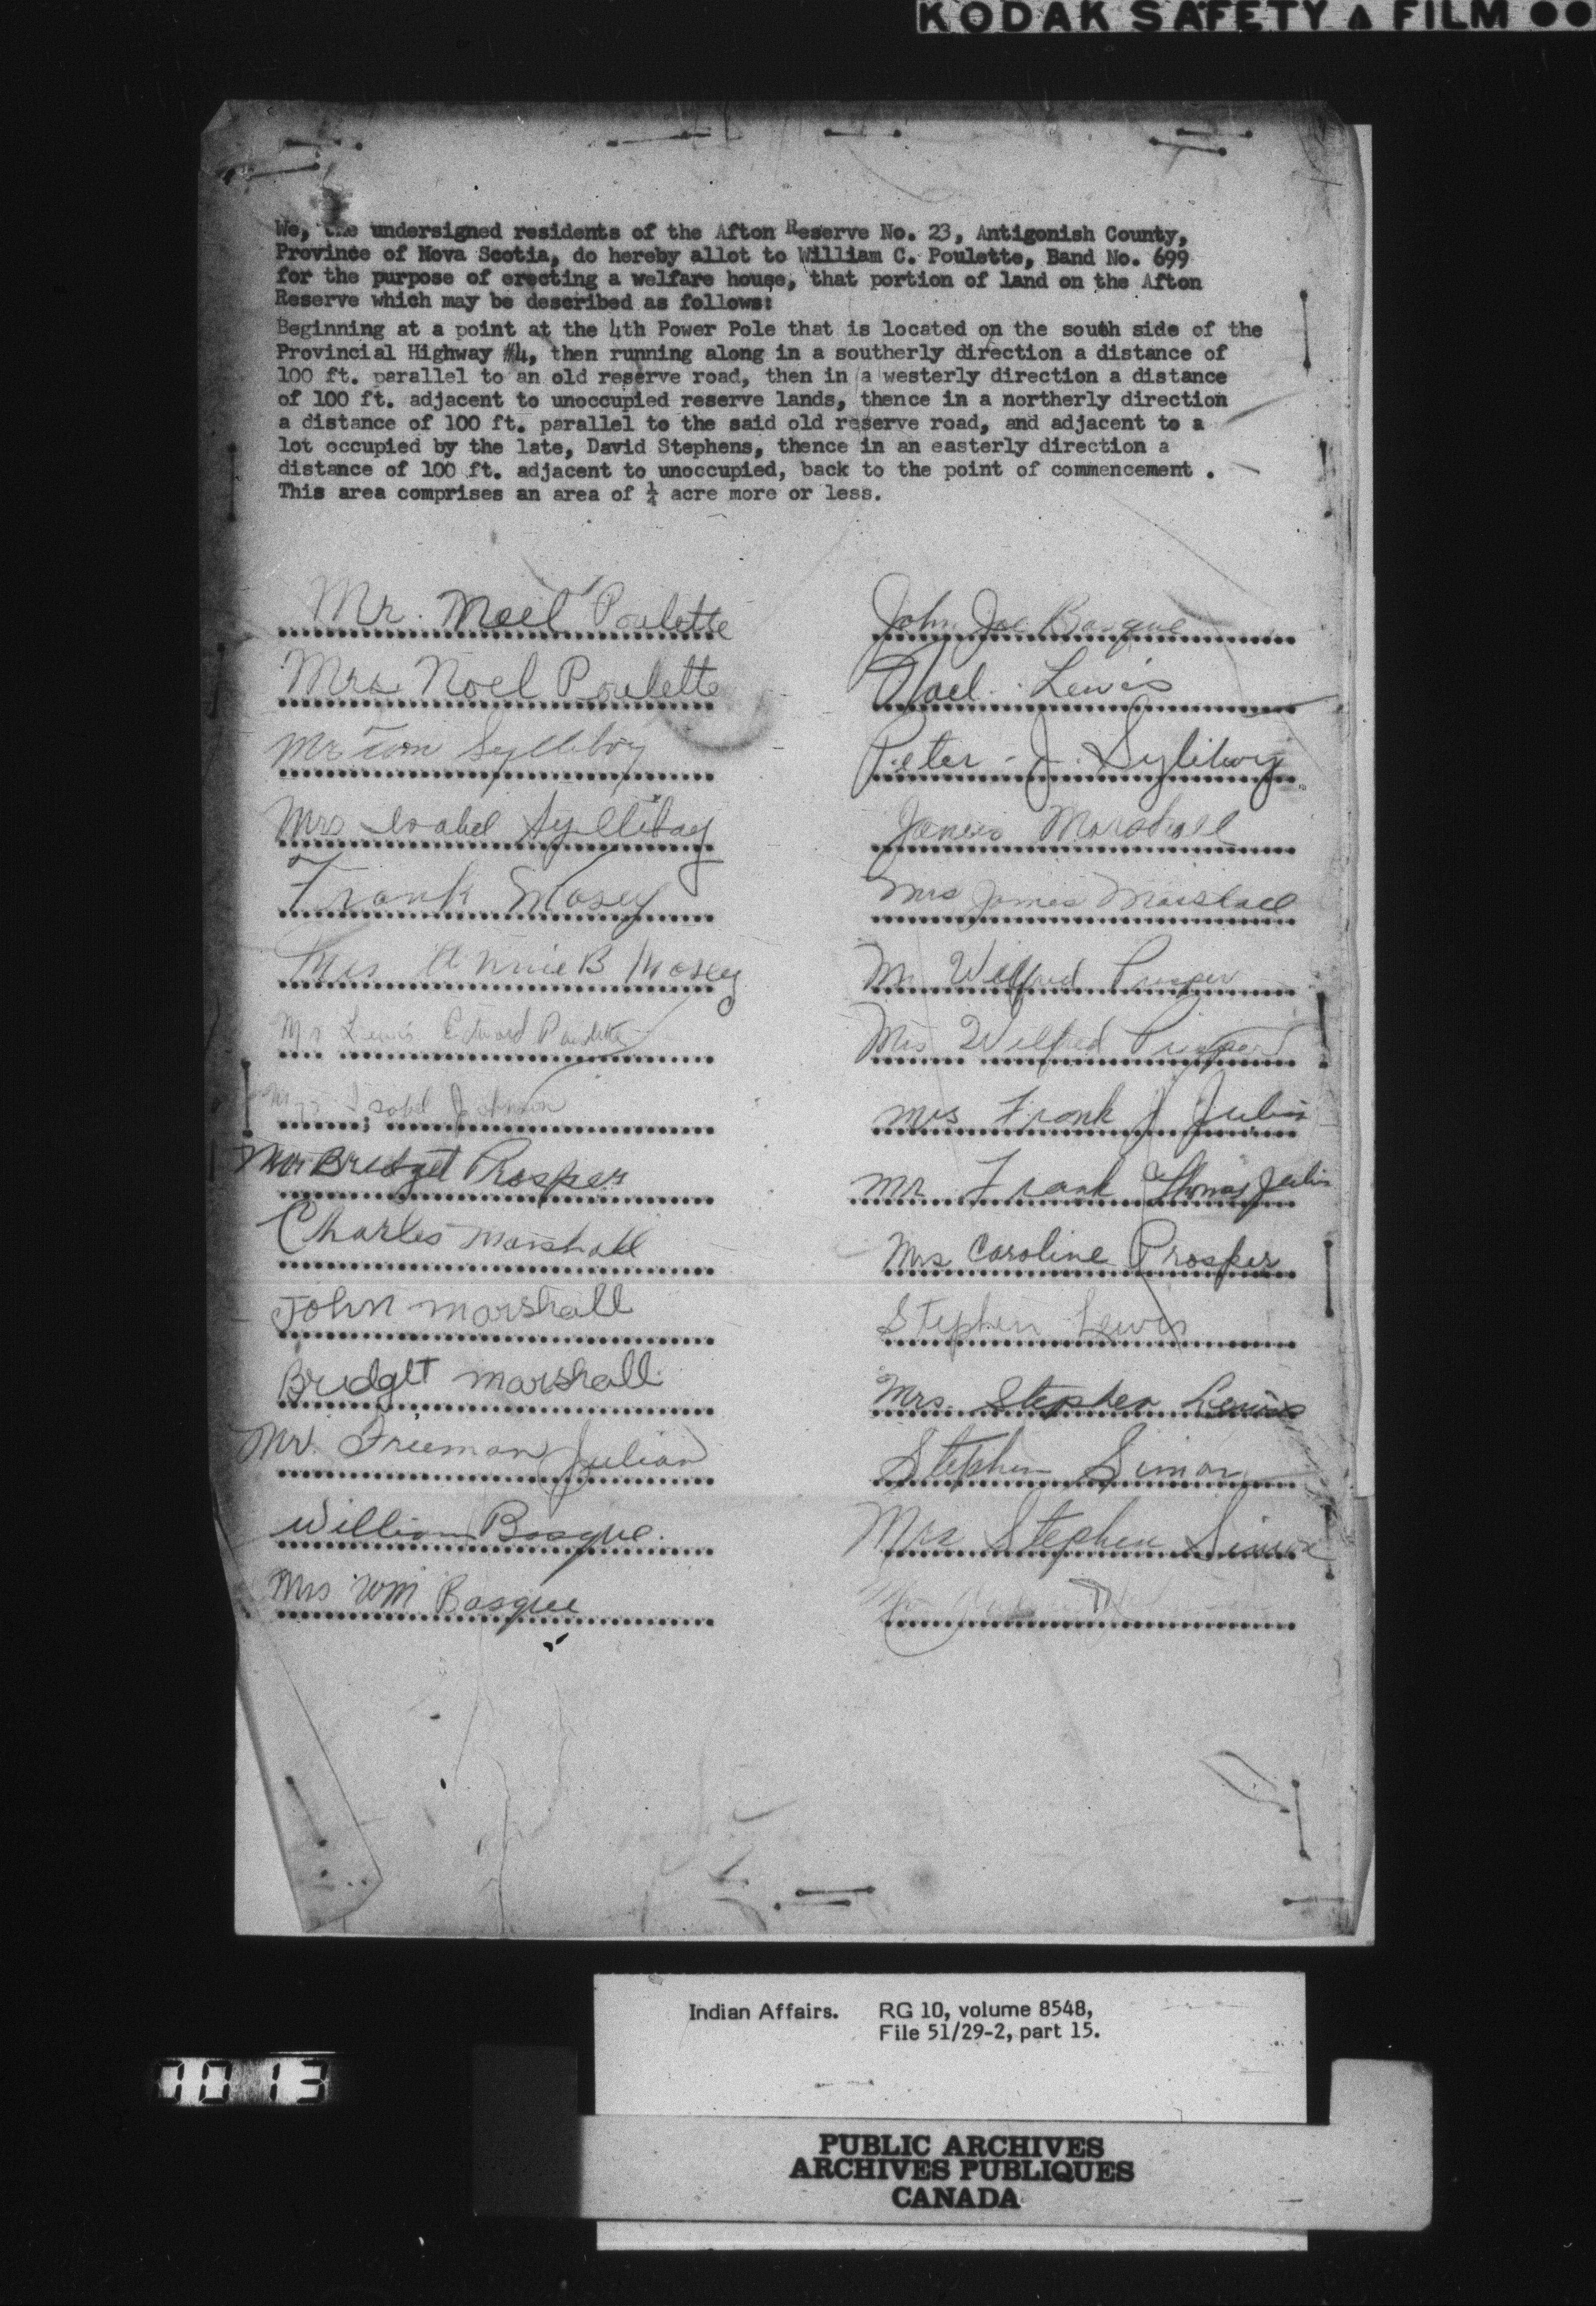 KODAK SAFETY FILM
We, the undersigned residents of the Afton Reserve No. 23, Antigonish County,
Province of Nova Scotia, do hereby allot to William C. Poulette, Band No. 699
for the purpose of erecting a welfare house, that portion of land on the Afton
Reserve which may be described as follows:
Beginning at a point at the 4th Power Pole that is located on the south side of the
Provincial Highway #4, then running along in a southerly direction a distance of
100 ft. parallel to an old reserve road, then in a westerly direction a distance
of 100 ft. adjacent to unoccupied reserve lands, thence in a northerly direction
a distance of 100 ft. parallel to the said old reserve road, and adjacent to a
lot occupied by the late, David Stephens, thence in an easterly direction a
distance of 100 ft. adjacent to unoccupied, back to the point of commencement .
This area comprises an area of ¼ acre more or less.
Mr. Noel Poulette
Mrs Noel Poulette
Mr Wm Sylliboy
Mrs Isabel Sylliboy
Frank Mosey
Mrs Annie B Mosey
Mr Lewis Edward Poulette
Isabel Johnson
Mrs Bridget Prosper
Charles Marshall
John Marshall
Bridget Marshall
Mr. Freeman Julian
William Basque.
Mrs Wm Basque
John Joe Basque
Noel Lewis
Peter J. Syliboy
James Marshall
Mrs James Marshall
Mr Wilfred Prosper
Mrs Wilfred Prosper
Mrs Frank J Julian
Mr Frank Thomas Julian
Mrs Caroline Prosper
Stephen Lewis
Mrs. Stephen Lewis
Stephen Simon
Mrs Stephen Simon
Indian Affairs. RG 10, volume 8548,
File 51/29-2, part 15.
0013
PUBLIC ARCHIVES
ARCHIVES PUBLIQUES
CANADA